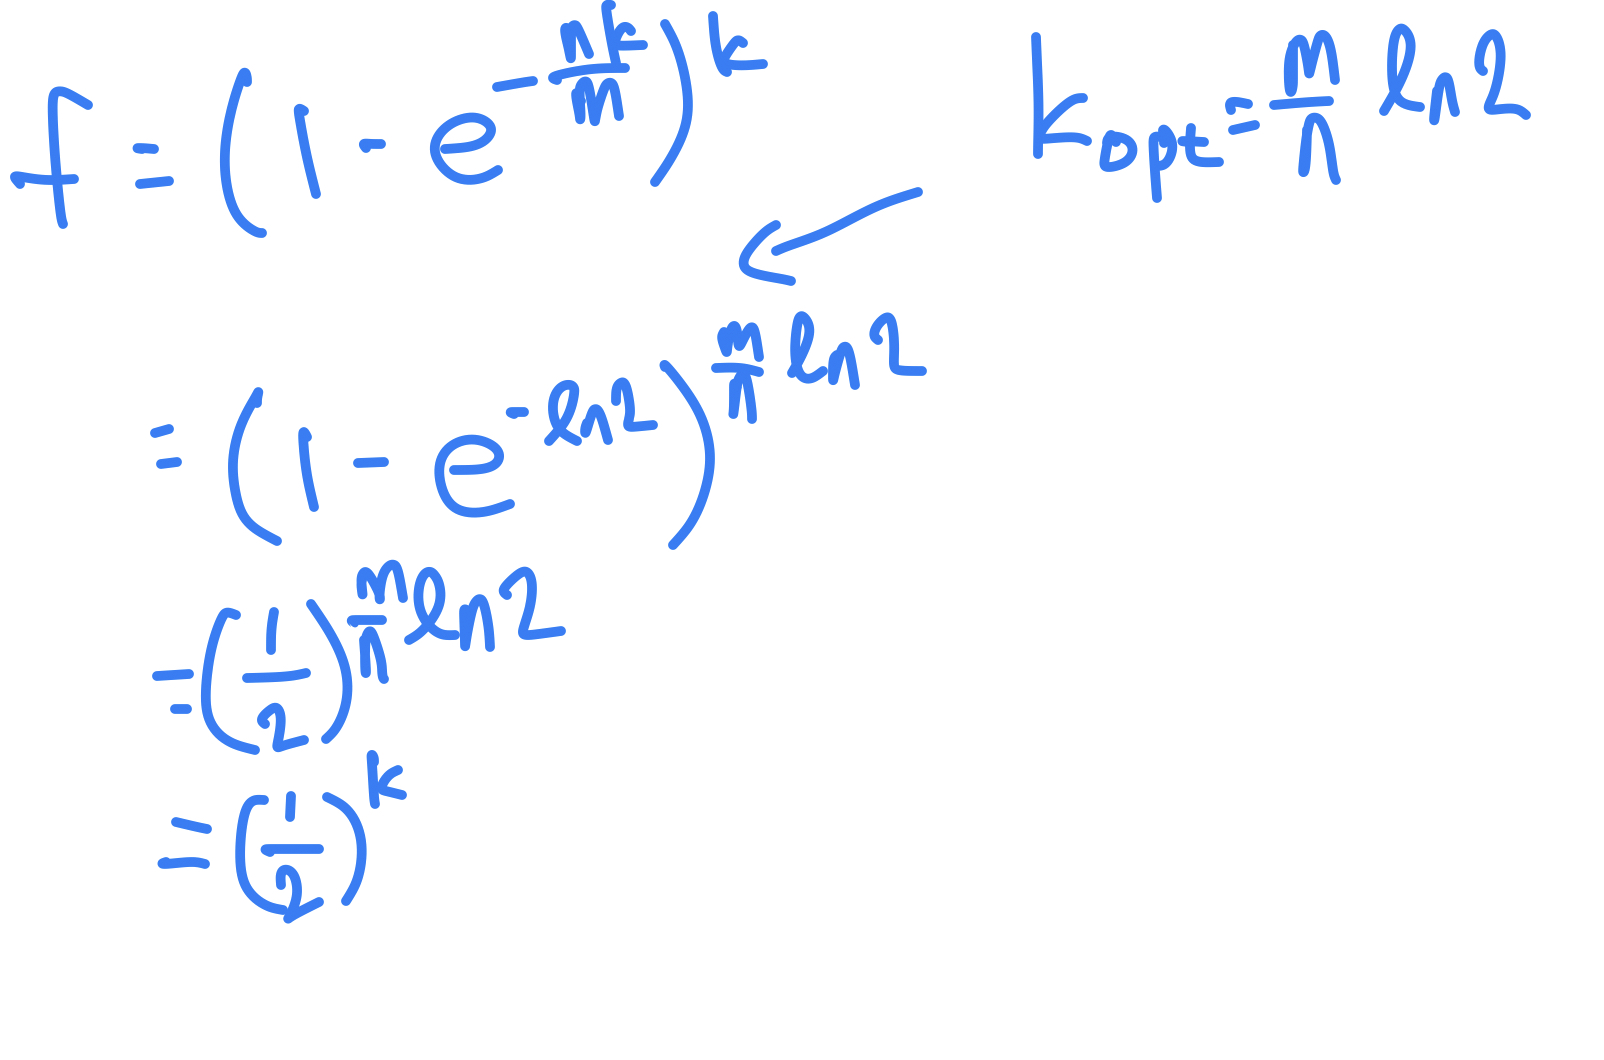 f = (1 - e^{-\frac{nk}{m}})^k
k_{opt} = \frac{m}{n} ln2
= (1 - e^{-ln2})^{\frac{m}{n} ln2}
= (\frac{1}{2})^{\frac{m}{n} ln2}
= (\frac{1}{2})^k